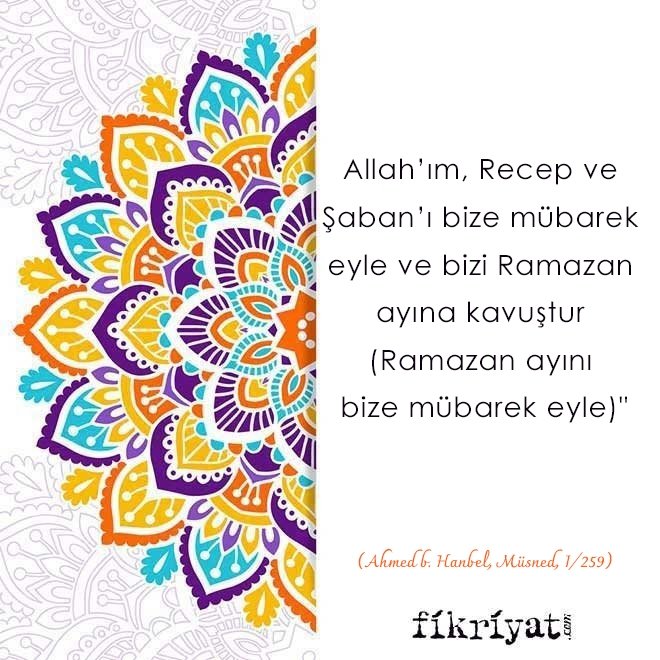 Allah’ım, Recep ve
Şaban’ı bize mübarek
eyle ve bizi Ramazan
ayına kavuştur
(Ramazan ayını
bize mübarek eyle)"
(Ahmed b. Hanbel, Müsned, 1/259)
fikriyat.com